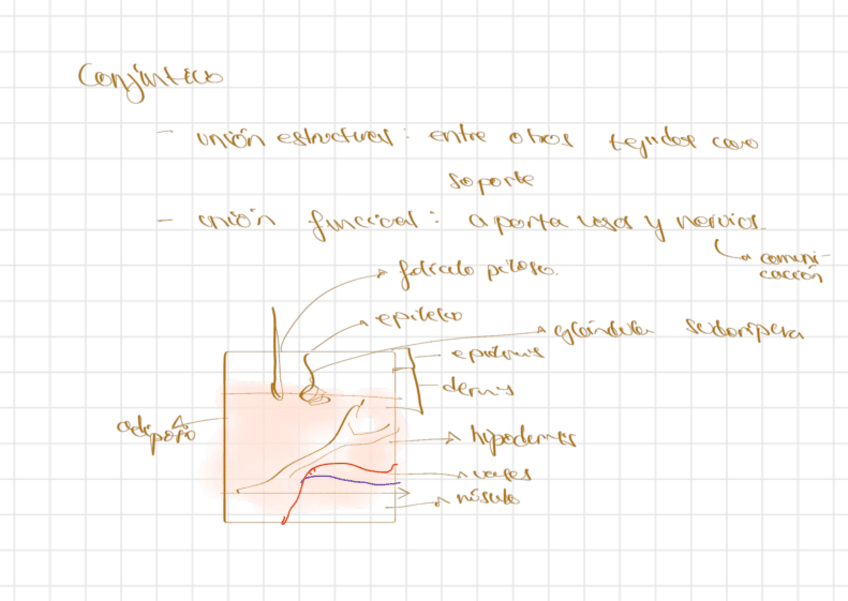 Conjuntivo
- unión estructural: entre otros tejidos como
soporte
- unión funcional: aporta vasos y nervios.
comuni-
cación
folículo piloso.
epitelio
glándula sudorípera
epidermis
dermis
adiposo
hipodermis
vasos
músculo